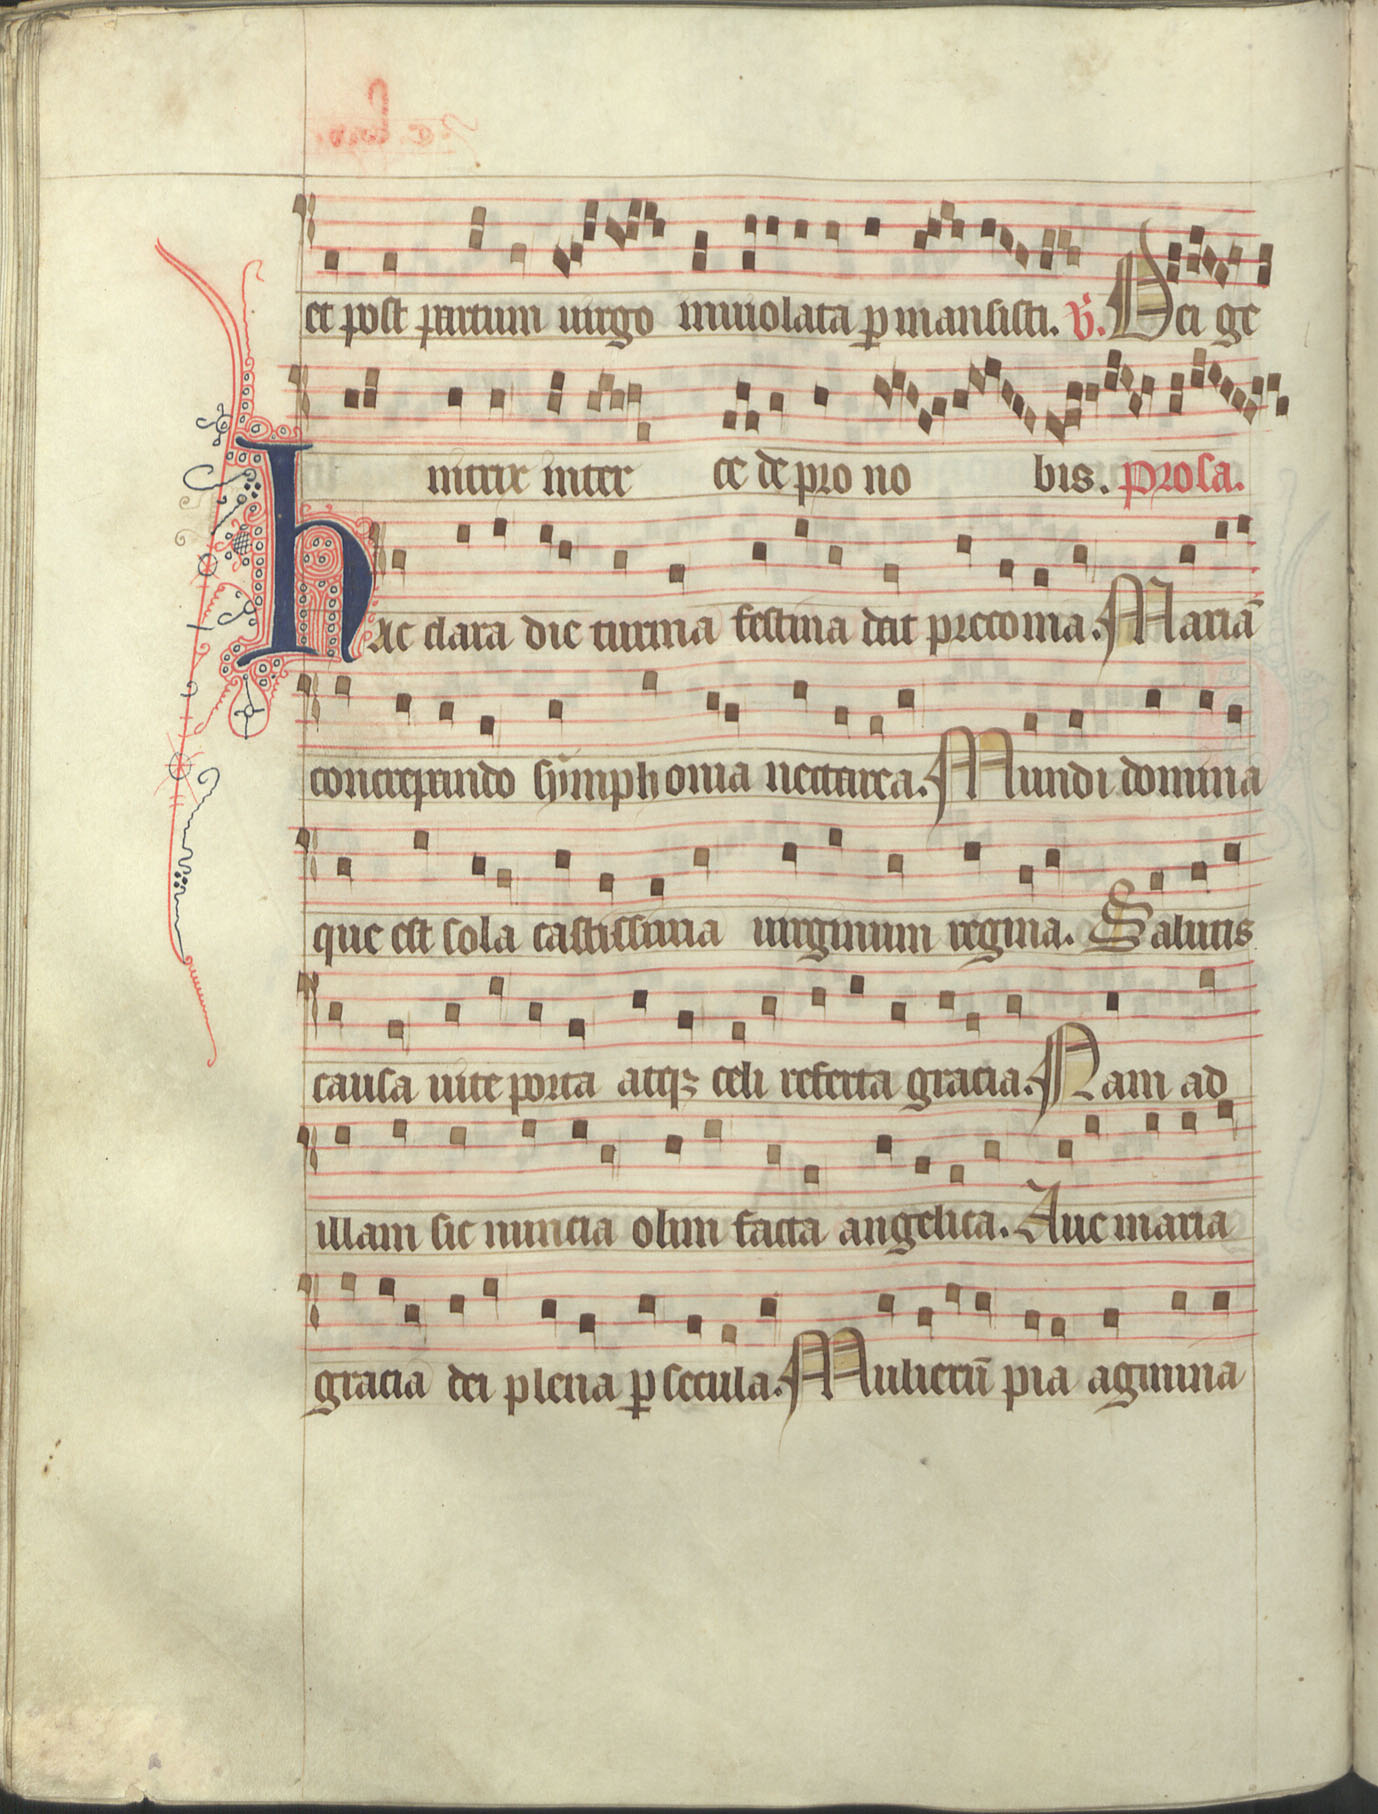 et post partum uirgo inuiolata ꝑmansisti. V. Dei ge
nitrix inter ce de pro no bis. prosa.
hac clara die turma festina dat preconia. Mariā
concrepando sÿmphonia nectarea. Mundi domina
que est sola castissima uirginum regina. Salutis
causa uite porta atqꝫ celi referta gracia. Nam ad
illam sic nuncia olim facta angelica. Aue maria
gracia dei plena ꝑ secula. Mulierū pia agmina